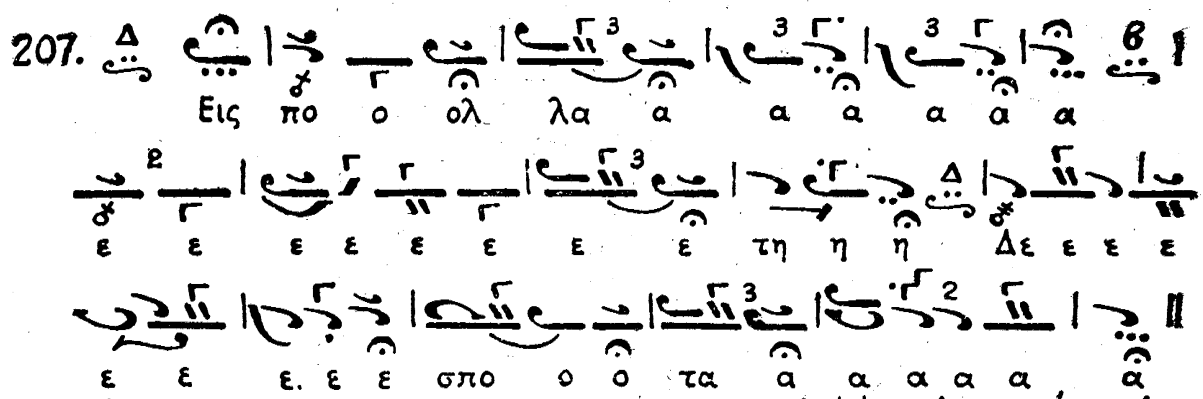 207.
Εις πο ο ολ λα α α α α α α
ε ε ε ε ε ε ε ε τη η η Δε ε ε ε
ε ε ε. ε ε σπο ο ο τα α α α α α, α